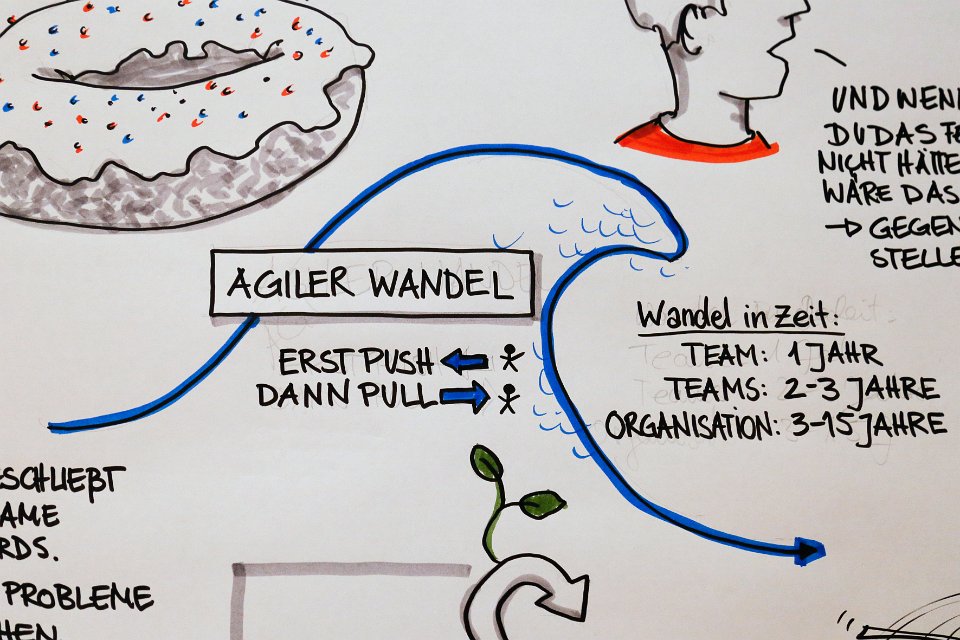 UND WENN
DU DAS
NICHT HÄTTE
WÄRE DAS
→ GEGEN
STELLE
AGILER WANDEL
ERST PUSH
DANN PULL
Wandel in Zeit:
TEAM: 1 JAHR
TEAMS: 2-3 JAHRE
ORGANISATION: 3-15 JAHRE
ESCHLIEßT
AME
RDS.
PROBLEME
HEN